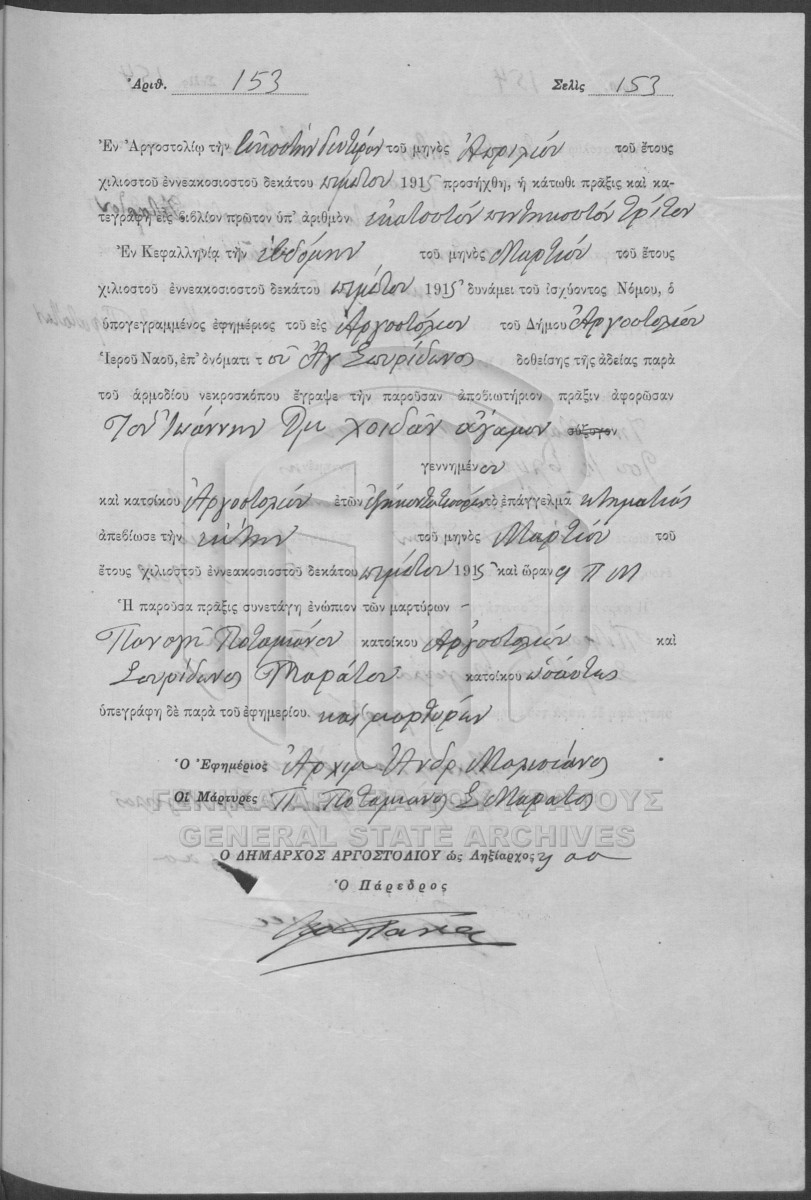 Ἀριθ. 153 Σελὶς 153
Ἐν Ἀργοστολίῳ τὴν εἰκοστὴν δευτέραν τοῦ μηνὸς Ἀπριλίου τοῦ ἔτους
χιλιοστοῦ ἐννεακοσιοστοῦ δεκάτου πέμπτου 1915 προσήχθη, ἡ κάτωθι πρᾶξις καὶ κα-
τεγράφη εἰς βιβλίον πρῶτον ὑπ' ἀριθμὸν ἑκατοστὸν πεντηκοστὸν τρίτον
Ἐν Κεφαλληνίᾳ τὴν ἑβδόμην τοῦ μηνὸς Μαρτίου τοῦ ἔτους
χιλιοστοῦ ἐννεακοσιοστοῦ δεκάτου πέμπτου 1915 δυνάμει τοῦ ἰσχύοντος Νόμου, ὁ
ὑπογεγραμμένος ἐφημέριος τοῦ εἰς Ἀργοστόλιον τοῦ Δήμου Ἀργοστολίου
Ἱεροῦ Ναοῦ, ἐπ' ὀνόματι τοῦ Ἁγ Σπυρίδωνος δοθείσης τῆς ἀδείας παρὰ
τοῦ ἁρμοδίου νεκροσκόπου ἔγραψε τὴν παροῦσαν ἀποβιωτήριον πρᾶξιν ἀφορῶσαν
Τὸν Ἰωάννην Χοιδᾶν ἄγαμον σύζυγον
γεννημένον
καὶ κατοίκου Ἀργοστολίου ἐτῶν τὸ ἐπάγγελμα κτηματίας
ἀπεβίωσε τὴν ἕκτην τοῦ μηνὸς Μαρτίου τοῦ
ἔτους χιλιοστοῦ ἐννεακοσιοστοῦ δεκάτου πέμπτου 1915 καὶ ὥραν 9 Π Μ
Ἡ παροῦσα πρᾶξις συνετάγη ἐνώπιον τῶν μαρτύρων
Παναγῆ Ποταμιάνου κατοίκου Ἀργοστολίου καὶ
Σπυρίδωνος Μαράτου κατοίκου ὡσαύτως
ὑπεγράφη δὲ παρὰ τοῦ ἐφημερίου. καὶ μαρτύρων
Ὁ Ἐφημέριος Ἀρχιμ Ἀνδρ.
Οἱ Μάρτυρες Π. Ποταμιάνος Σ Μαράτος
ΓΕΝΙΚΑ ΑΡΧΕΙΑ ΤΟΥ ΚΡΑΤΟΥΣ
GENERAL STATE ARCHIVES
Ο ΔΗΜΑΡΧΟΣ ΑΡΓΟΣΤΟΛΙΟΥ ὡς Ληξίαρχος
Ὁ Πάρεδρος